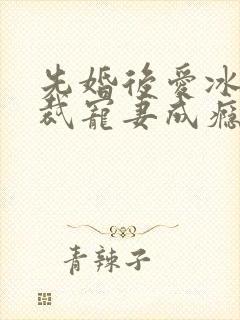 先婚後愛冰
裁寵妻成癮
青辣子